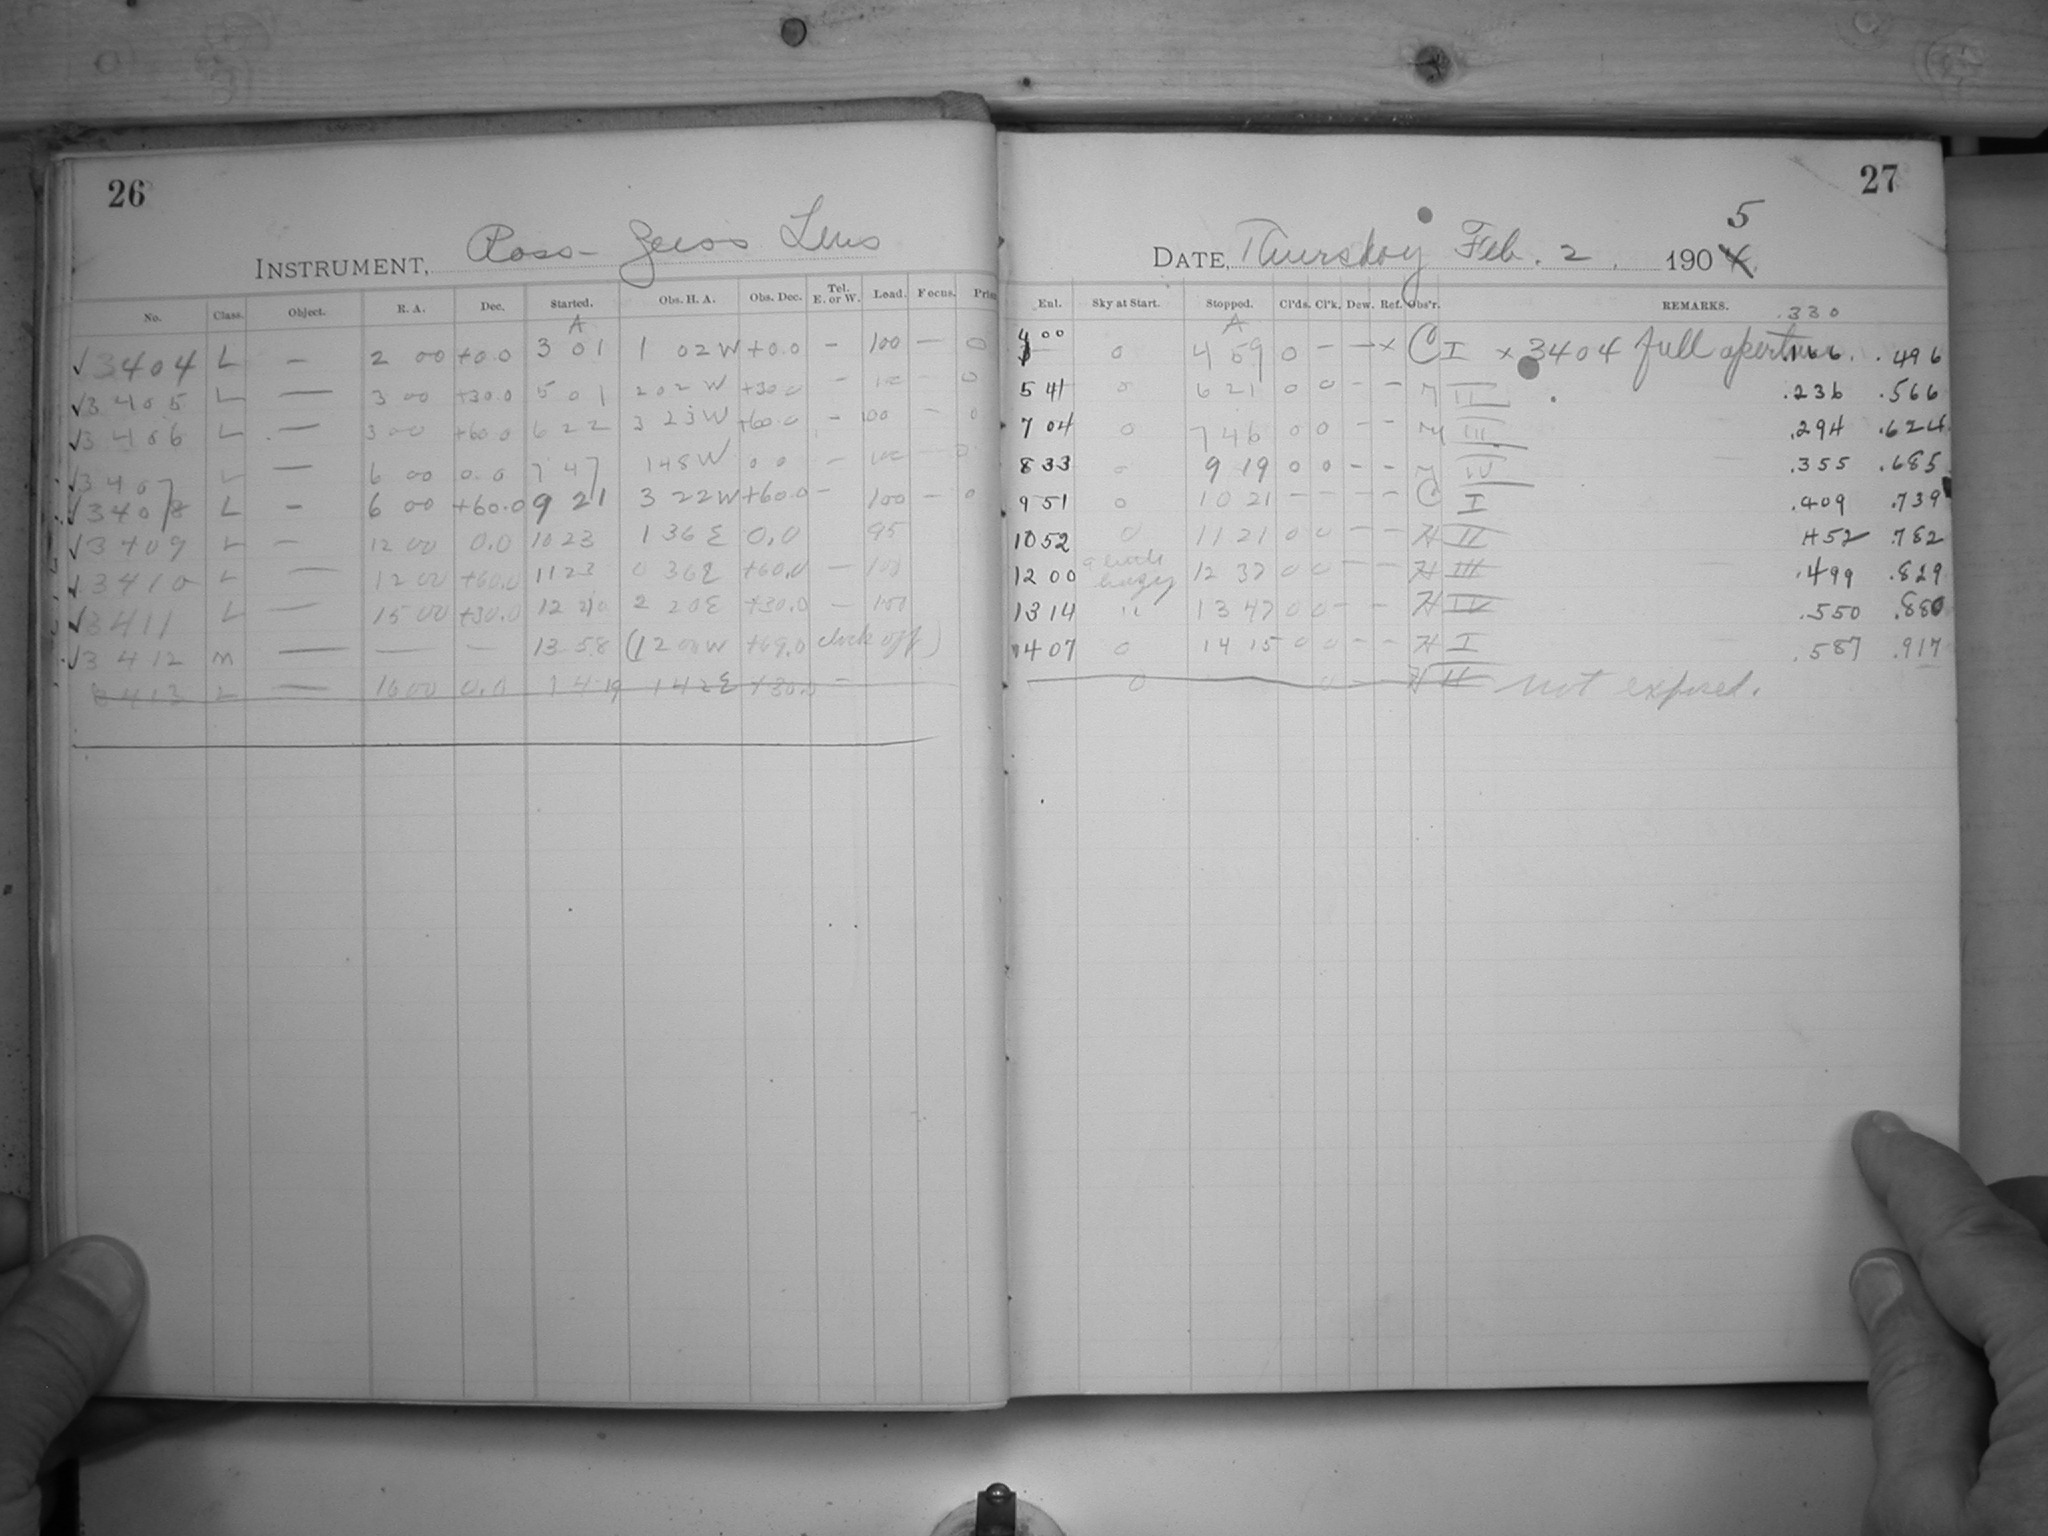 26
INSTRUMENT, Ross-Zeiss Lens
No. Class. Object. R. A. Dec. Started. Obs. H. A. Obs. Dec. Tel. E. or W. Load. Focus.
A
√3404 L — 2 00 +0.0 3 01 1 02W +0.0 — 100 — 0
√3405 L — 3 00 +30.0 5 01 2 02 W +30.0 — 100 — 0
√3406 L — 3 00 +60.0 6 22 3 23W +60.0 — 100 — 0
√3407 L — 6 00 0.0 7 47 1 48W 0 0 — 100 — 0
√3408 L — 6 00 +60.0 9 21 3 22W +60.0 — 100 — 0
√3409 L — 12 00 0.0 10 23 1 36 E 0.0 95
√3410 L — 12 00 +60.0 11 23 0 36E +60.0 — 100
√3411 L — 15 00 +30.0 12 40 2 20E +30.0 — 100
√3412 M — — — 13 58 (1 20W +69.0 clock off)
3413 L — 16 00 0.0 14 19 1 42E +30.0 —
27
DATE, Thursday Feb. 2. 1904 5
Enl. Sky at Start. Stopped. Cl'ds. Cl'k. Dew. Ref. Obs'r. REMARKS.
A .330
4 00 0 4 59 0 — — x C I x 3404 full aperture .166 .496
5 41 0 6 21 0 0 — — M II .236 .566
7 04 0 7 46 0 0 — — M III .294 .624
8 33 0 9 19 0 0 — — M IV .355 .685
9 51 0 10 21 — — — — C I .409 .739
10 52 0 11 21 0 0 — — H II .452 .782
12 00 a little hazy 12 37 0 0 — — H III .499 .829
13 14 " 13 47 0 0 — — H IV .550 .880
14 07 0 14 15 0 0 — — H I .587 .917
0 0 — — H II not exposed.